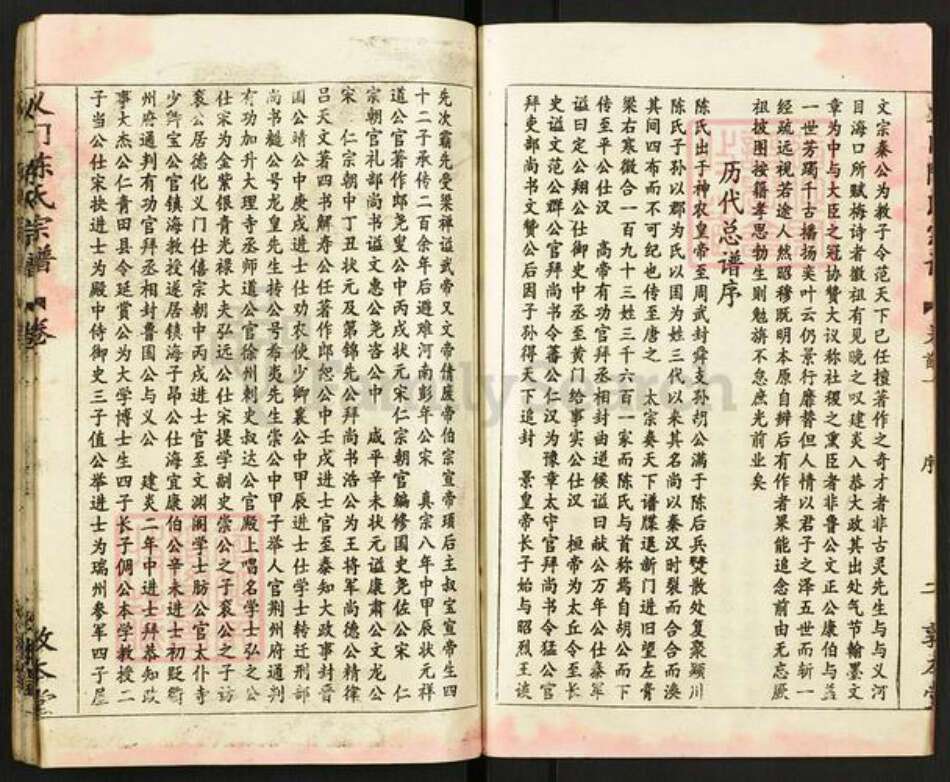 文宗秦公为教子令范天下已任擅著作之奇才者非古灵先生与与义河
目海口所赋梅诗者徽祖有见晚之叹建炎入恭大政其出处气节翰墨文
章为中与大臣之冠协赞大议称社稷之熏臣者非鲁公文正公康伯与
一世芳躅千古播扬奕叶云仍景行靡替但人情以君子之泽五世而斩一
经疏远视若途人然昭穆既明本原自辨后有作者果能追念前由无忘厥
祖披图按籍孝思勃生则勉旃不怠庶光前业矣
历代总谱序
陈氏出于神农皇帝至周武封舜支孙胡公满于陈后兵燹散处复聚颍川
陈氏子孙以郡为氏以国为姓三代以来其名尚以秦汉时裂而合合而涣
其间四布而不可纪也传至唐之 太宗奏天下谱牒退新门进旧望左膏
梁右寒微合一百九十三姓三千六百一家而陈氏与首称焉自胡公而下
传至平公仕汉 高帝有功官拜丞相封曲逆候谥曰献公万年公仕秦军
谥曰定公翔公仕御史中丞至黄门给事实公仕汉 桓帝为太丘令至长
史谥文范公群公官拜尚书令蕃公仁汉为豫章太守官拜尚书令猛公官
拜吏部尚书文赞公后因子孙得天下追封 景皇帝长子始与昭烈王谈
先次霸先受梁禅谥武帝又文帝倩废帝伯宗宣帝顼后主叔宝宣帝生四
十二子承传二百余年后避难河南彭年公宋 真宗八年中甲辰状元祥
道公官著作郎尧叟公中丙戌状元宋仁宗朝官编修国史尧佐公宋 仁
宗朝官礼部尚书谥文惠公尧咨公中 咸平辛未状元谥康肃公文龙公
宋 仁宗朝中丁丑状元及第锦先公拜尚书浩公为王将军尚德公精律
吕天文著四书解寿公任著作郎恕公中壬戌进士官至泰知大政事封晋
国公靖公中庚戌进士仕劝农使少卿襄公中甲辰进士仕学士转迁刑部
尚书 公号龙皇先生抟公号希夷先生崇公中甲子举人官荆州府通判
有功加升大理寺丞师道公官徐州刺史叔达公官殿上唱名学士弘之公
仕宋为金紫银青光禄大夫弘远公仕宋提学副史崇公之子衮公之子访
衮公居德化义门仕僖宗朝中丙戌进士官至文渊阁学士肪公官太仆寺
少卿宝公官镇海教授遂居镇海子昂公仕海宜康伯公辛未进士初贬衢
州府通判有功官拜丞相封鲁国公与义公 建炎二年中进士拜恭知政
事大杰公仁青田县令延赏公为大学博士生四子长子倜公本学教授二
子当公仕宋抉进士为殿中侍御史三子值公举进士为瑞州参军四子屋
义门陈氏宗谱 卷
敦本堂
序